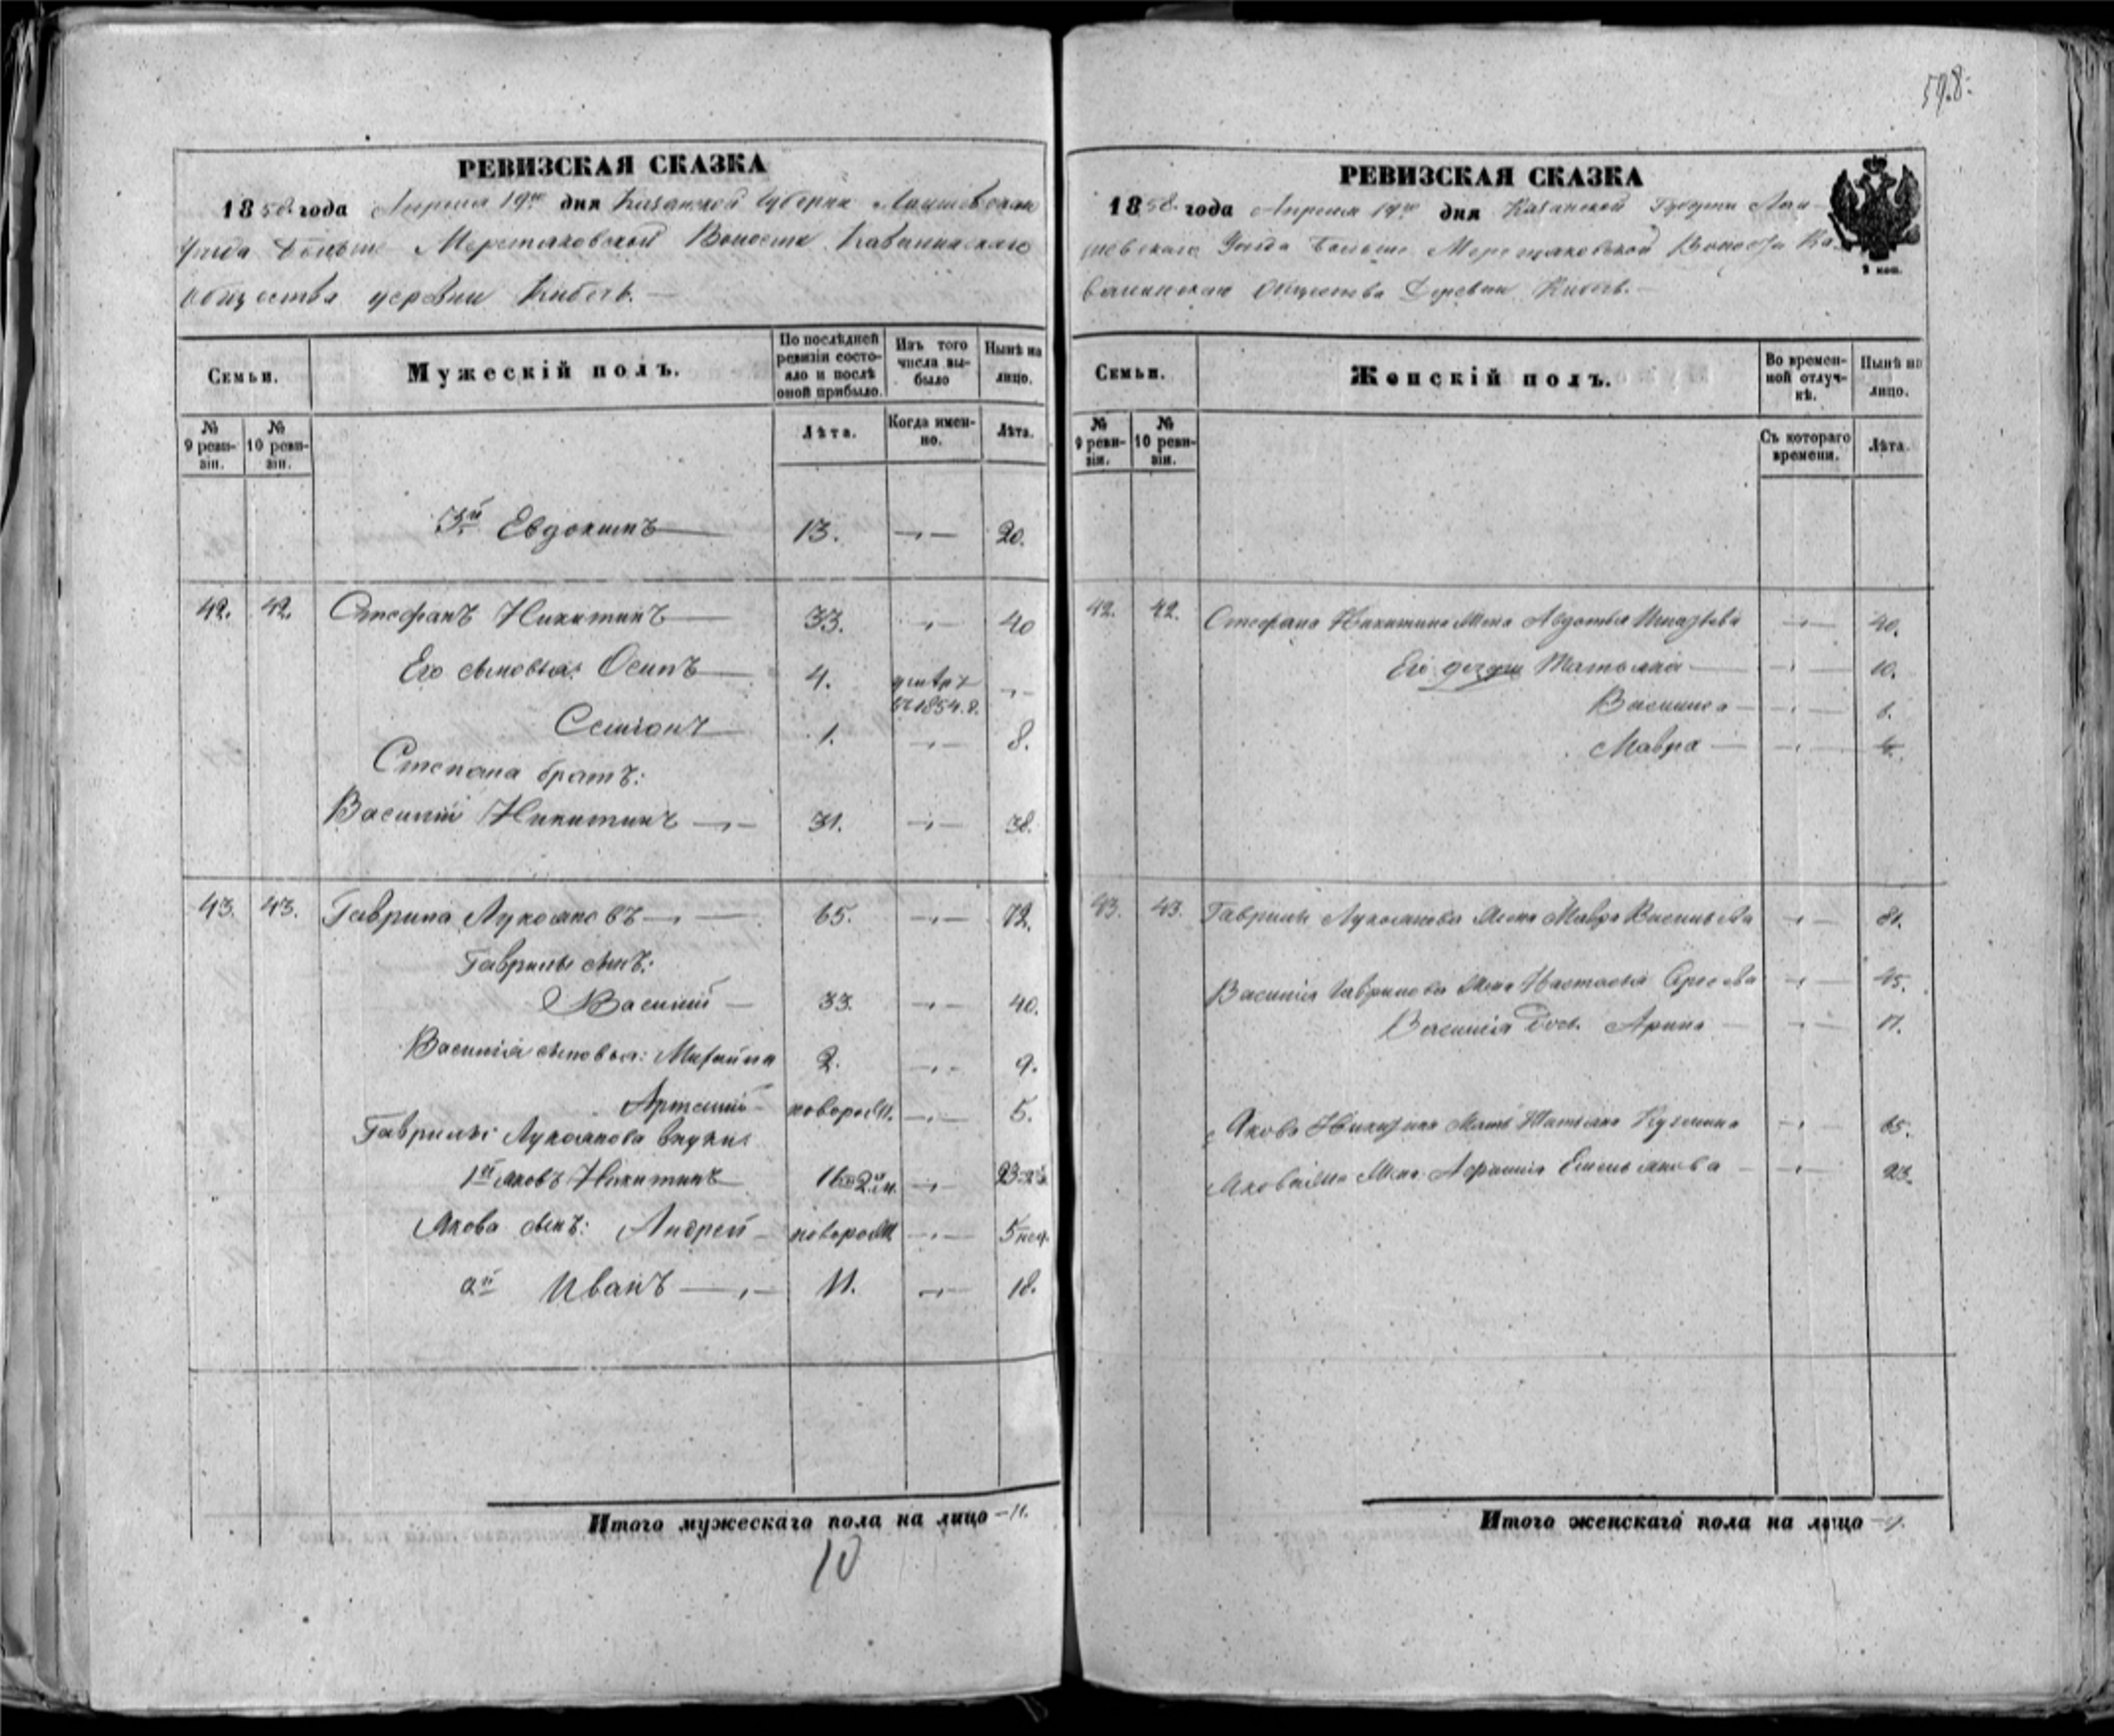 598.
РЕВИЗСКАЯ СКАЗКА
1858 года Апреля 19го дня Казанской Губерніи Лаишевскаго
Уѣзда Больше Меретяковской Волости Кабанинскаго
Общества деревни
Семьи.
Мужескій полъ.
По послѣдней ревизіи состояло и послѣ оной прибыло.
Изъ того числа выбыло
Нынѣ на лицо.
№ 9 ревизіи.
№ 10 ревизіи.
Лѣта.
Когда именно.
Лѣта.
3й Евдокимъ 13. 20.
42. 42. Стефанъ Никитинъ 33. 40
Его сыновья: Осипъ 4. умеръ въ 1854.г.
Семіонъ 1. 8.
Степана братъ:
Василій Никитинъ 31. 38.
43. 43. Гаврила Лукояновъ 65. 72.
Гаврилы сынъ:
Василій 33. 40.
Василія сыновья: Михайла 2. 9.
Артемій новорожд. 5.
Гаврилы Лукоянова внуки
1й Яковъ Никитинъ 16 23
Якова сынъ: Андрей новорожд. 5 нед.
2й Иванъ 11. 18.
Итого мужескаго пола на лицо 11.
10
РЕВИЗСКАЯ СКАЗКА
1858 года Апреля 19го дня Казанской Губерніи Лаи-
шевскаго Уѣзда Больше Меретяковской Волости Ка-
банинскаго Общества Деревни
2 коп.
Семьи.
Женскій полъ.
Во временной отлучкѣ.
Нынѣ на лицо.
№ 9 ревизіи.
№ 10 ревизіи.
Съ котораго времени.
Лѣта.
42. 42. Стефана Никитина Жена Авдотья 40.
Его дочери Татьяна 10.
Василиса
Мавра 4.
43. 43. Гаврилы Лукоянова Жена Мавра Васильева 81.
Василія Гаврилова Жена Настасья 45.
Василія Дочь Арина 17.
Якова Никитина Мать Татьяна Кузмина 65.
Якова Жена Емельянова 23.
Итого женскаго пола на лицо